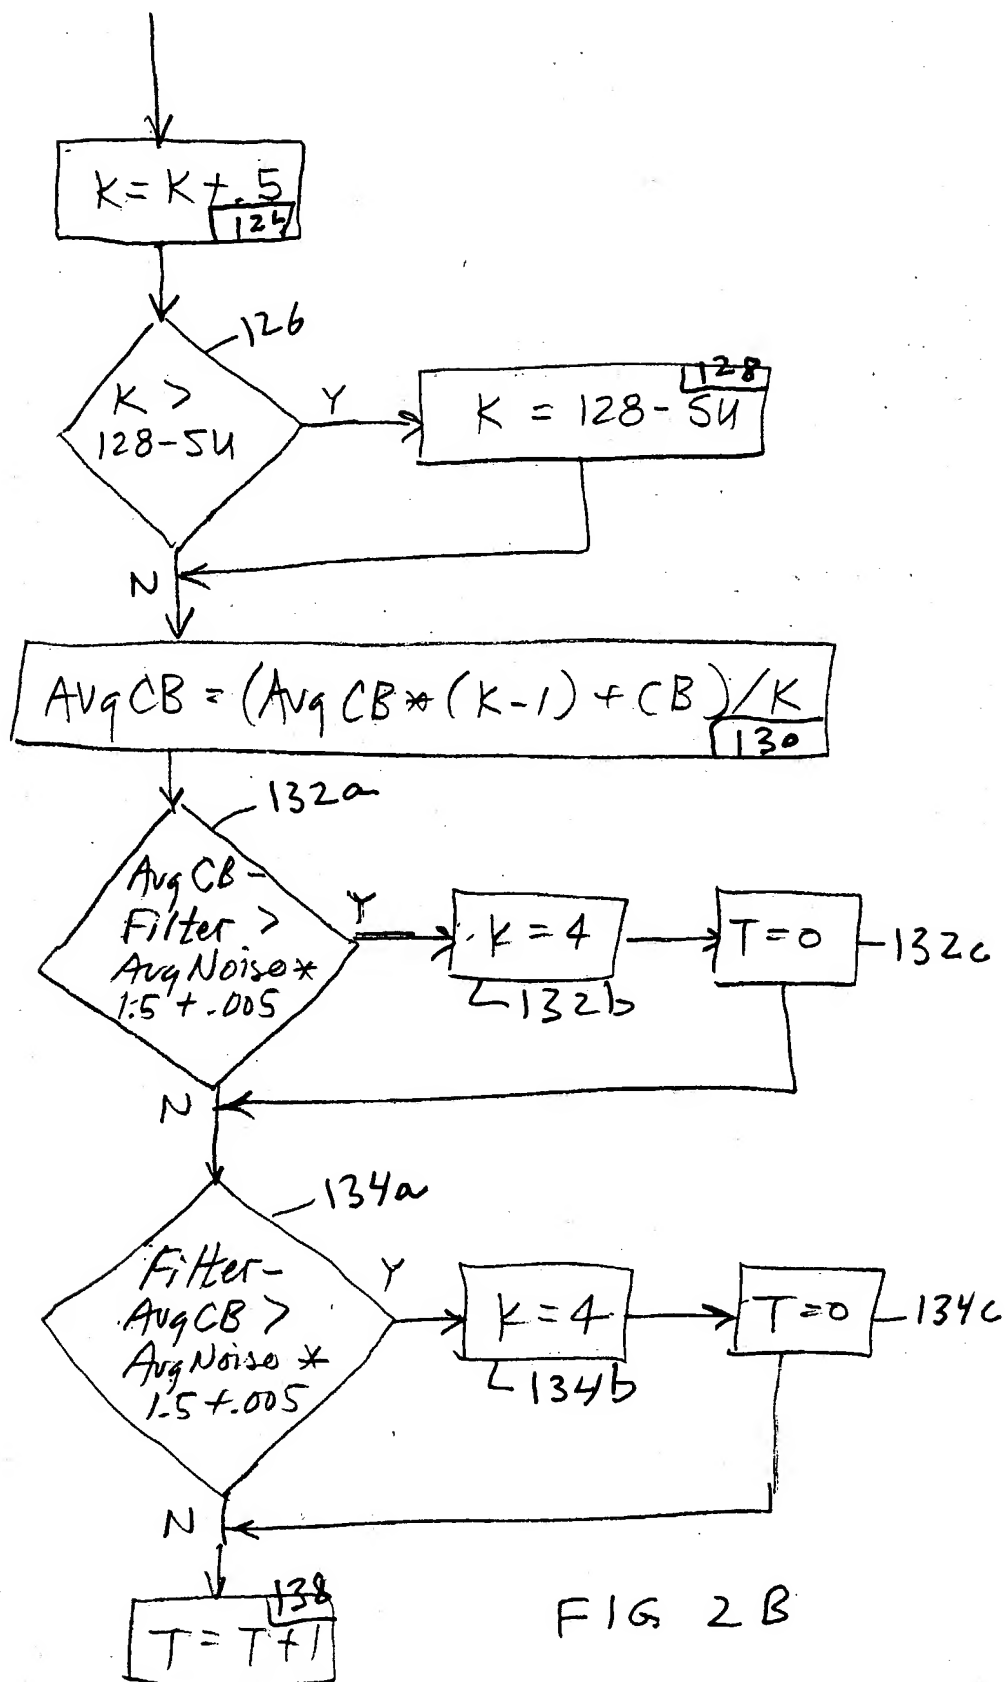 K = K + .5
126
K >
128-SU
Y
128
K = 128 - SU
N
AvgCB = (AvgCB * (K-1) + CB)/K
130
132a
AvgCB -
Filter >
AvgNoise *
1.5 + .005
Y
K = 4
132b
T = 0
132c
N
134a
Filter -
AvgCB >
AvgNoise *
1.5 + .005
Y
K = 4
134b
T = 0
134c
N
138
T = T + 1
FIG 2B